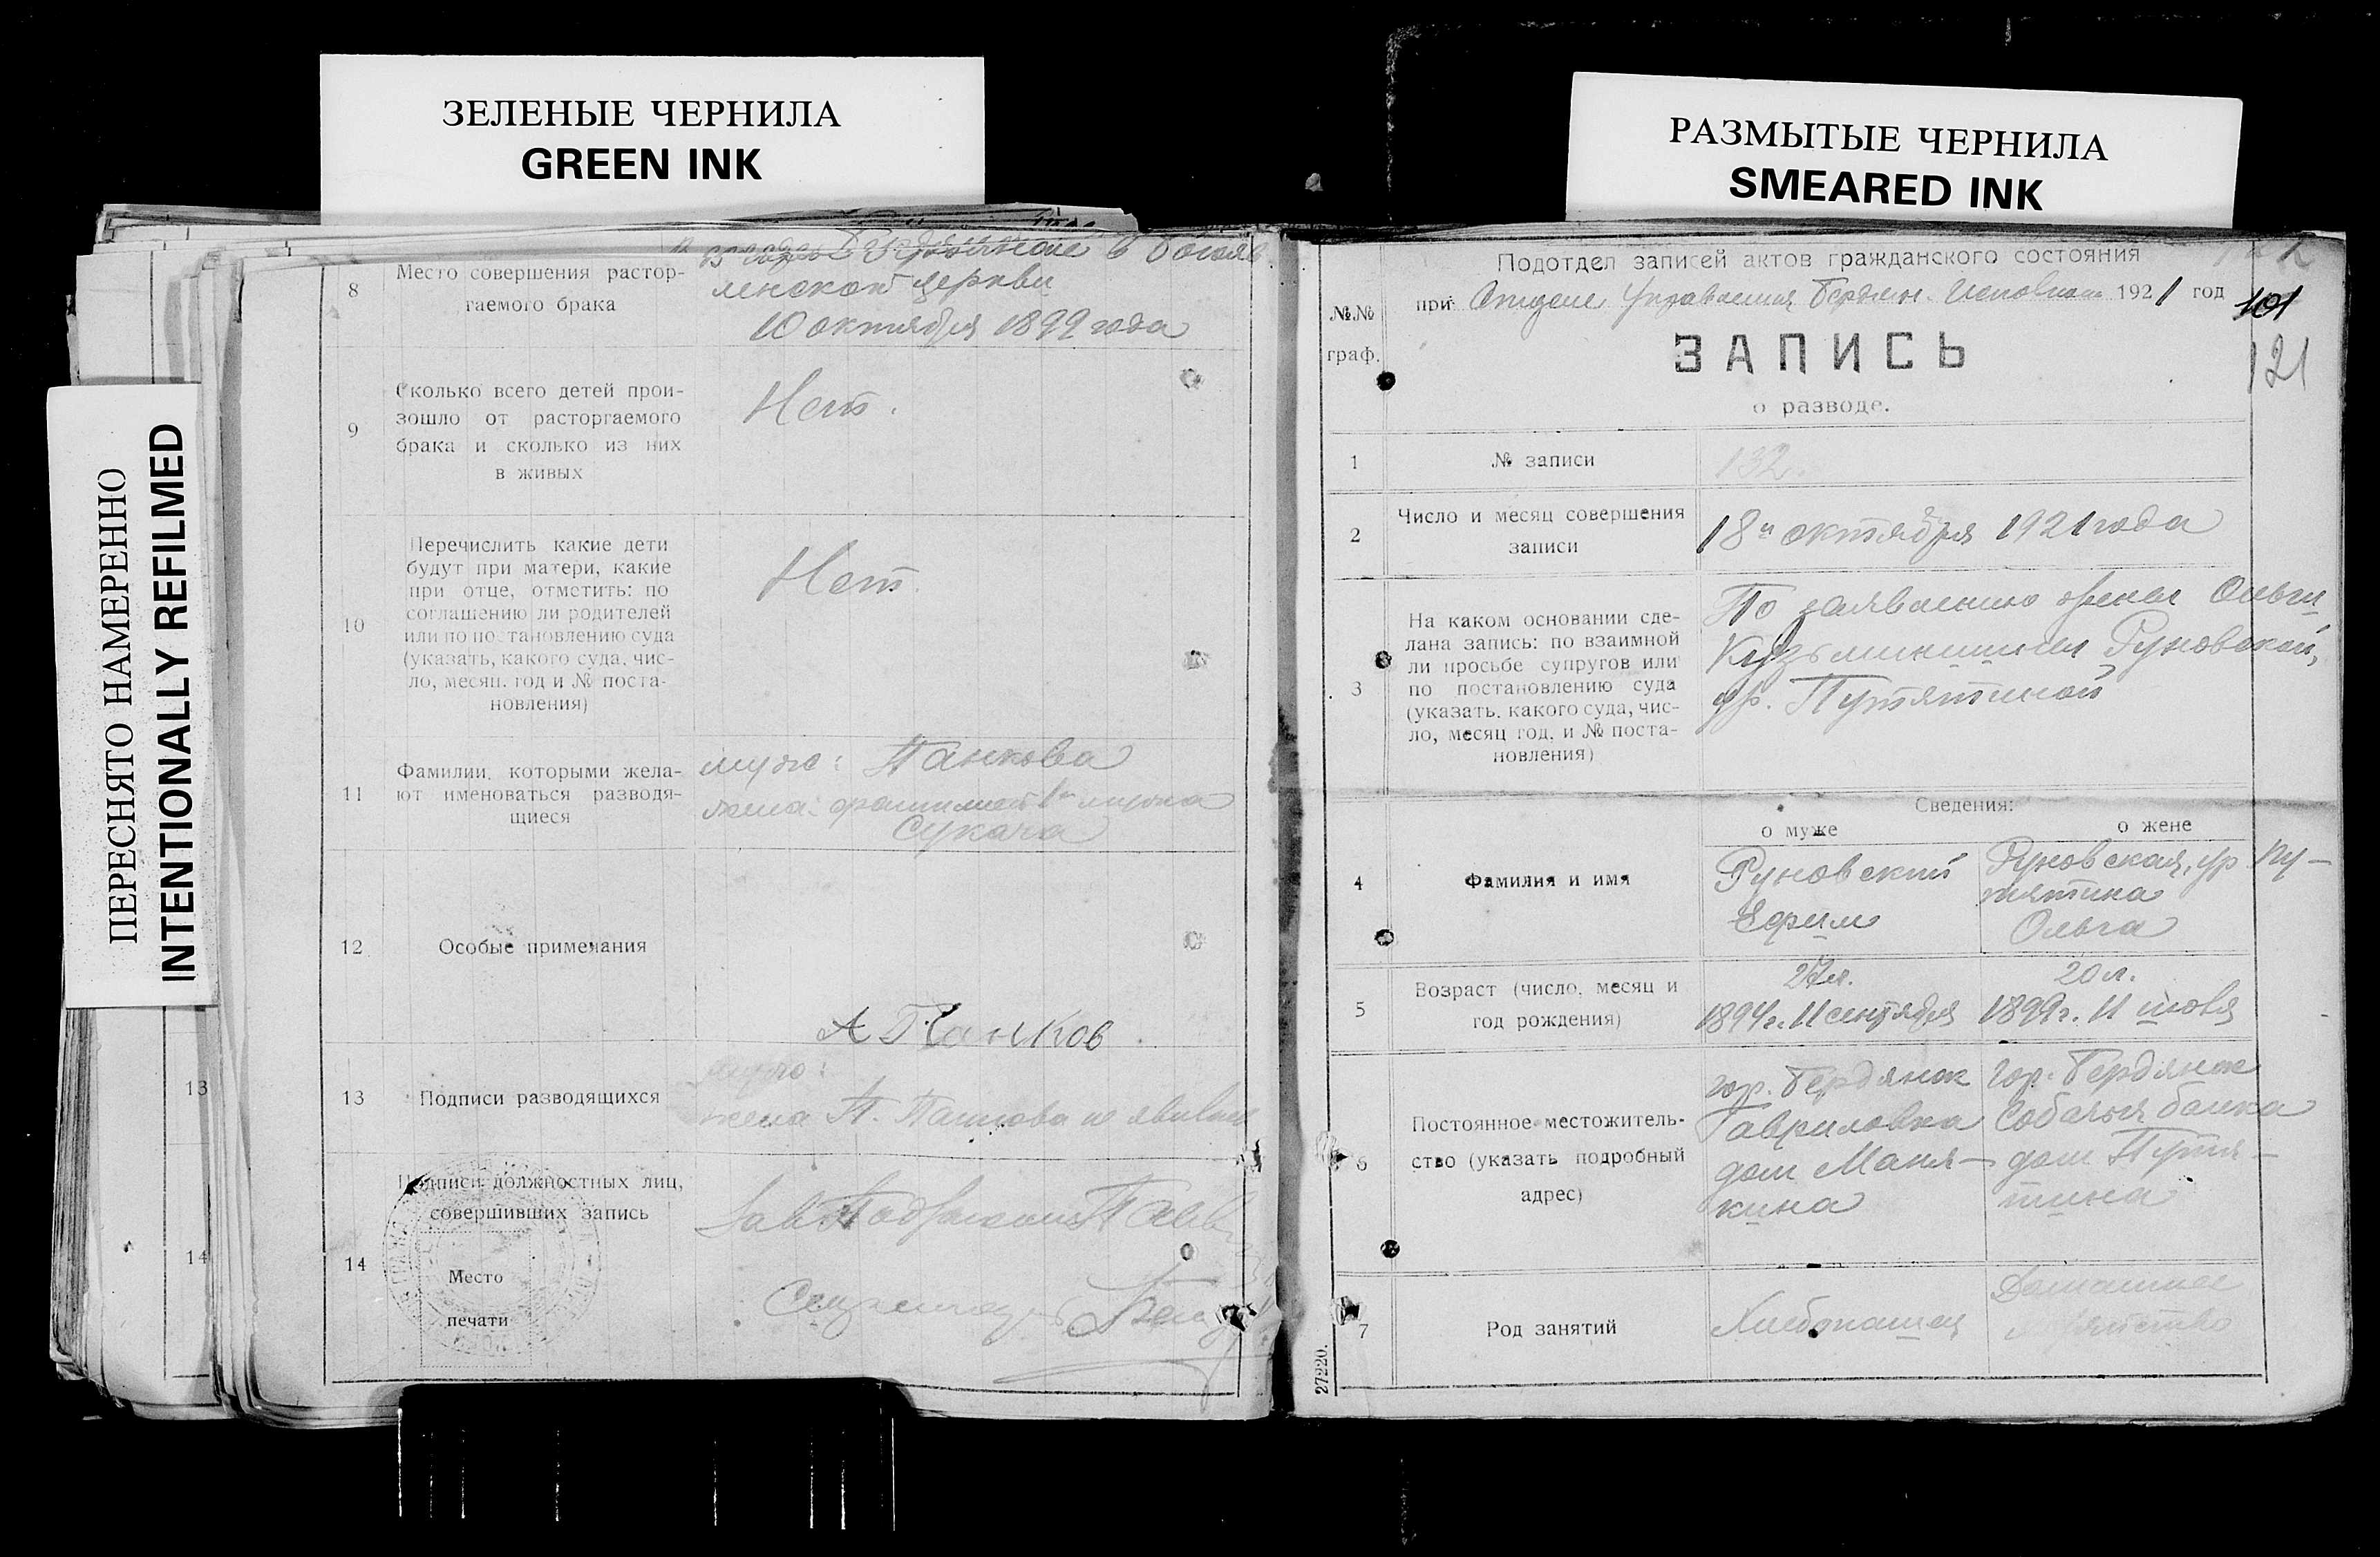 ЗЕЛЕНЫЕ ЧЕРНИЛА
GREEN INK
РАЗМЫТЫЕ ЧЕРНИЛА
SMEARED INK
ПЕРЕСНЯТО НАМЕРЕННО
INTENTIONALLY REFILMED
13
14
8
Место совершения растор-
гаемого брака
церкви
10 октября 1899 года
9
Сколько всего детей прои-
зошло от расторгаемого
брака и сколько из них
в живых
Нет.
10
Перечислить какие дети
будут при матери, какие
при отце, отметить: по
соглашению ли родителей
или по постановлению суда
(указать, какого суда, чис-
ло, месяц. год и № поста-
новления)
Нет.
11
Фамилии, которыми жела-
ют именоваться разводя-
щиеся
муж: Панкова
жена: фамилией 1го мужа
Сукача
12
Особые примечания
А Панков
13
Подписи разводящихся
муж:
жена П. Панкова не
14
Подписи должностных лиц,
совершивших запись
Место
печати
Подотдел записей актов гражданского состояния
при Отделе Управления Бердян. Исполкома 1921 год
101
121
№№
граф.
ЗАПИСЬ
о разводе.
1
№ записи
132.
2
Число и месяц совершения
записи
18го октября 1921 года
3
На каком основании сде-
лана запись: по взаимной
ли просьбе супругов или
по постановлению суда
(указать. какого суда, чис-
ло, месяц год, и № поста-
новления)
По заявлению жены Ольги
Кузьминишны Руновской,
ур. Путятиной
Сведения:
о муже
о жене
4
Фамилия и имя
Руновский
Ефим
Руновская, ур Пу-
тятина
Ольга
5
Возраст (число, месяц и
год рождения)
27л.
1894г. 11 сентября
20 л.
1899г. 11 июля
6
Постоянное местожитель-
ство (указать подробный
адрес)
гор. Бердянск
Гавриловка
дом Маня-
кина
гор. Бердянск
Собачья балка
дом Путя-
тина
7
Род занятий
Хлебопашец
Домашнее
хозяйство
27220.